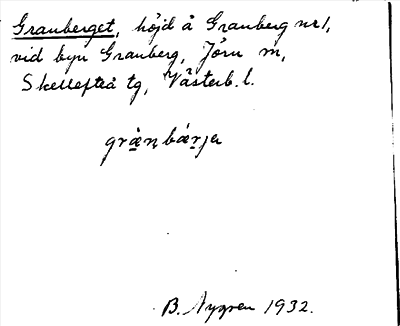 Granberget, höjd å Granberg nr1,
vid byn Granberg, Jörn m,
Skellefteå tg, Västerb. l.
grànbárja
B. Nygren 1932.